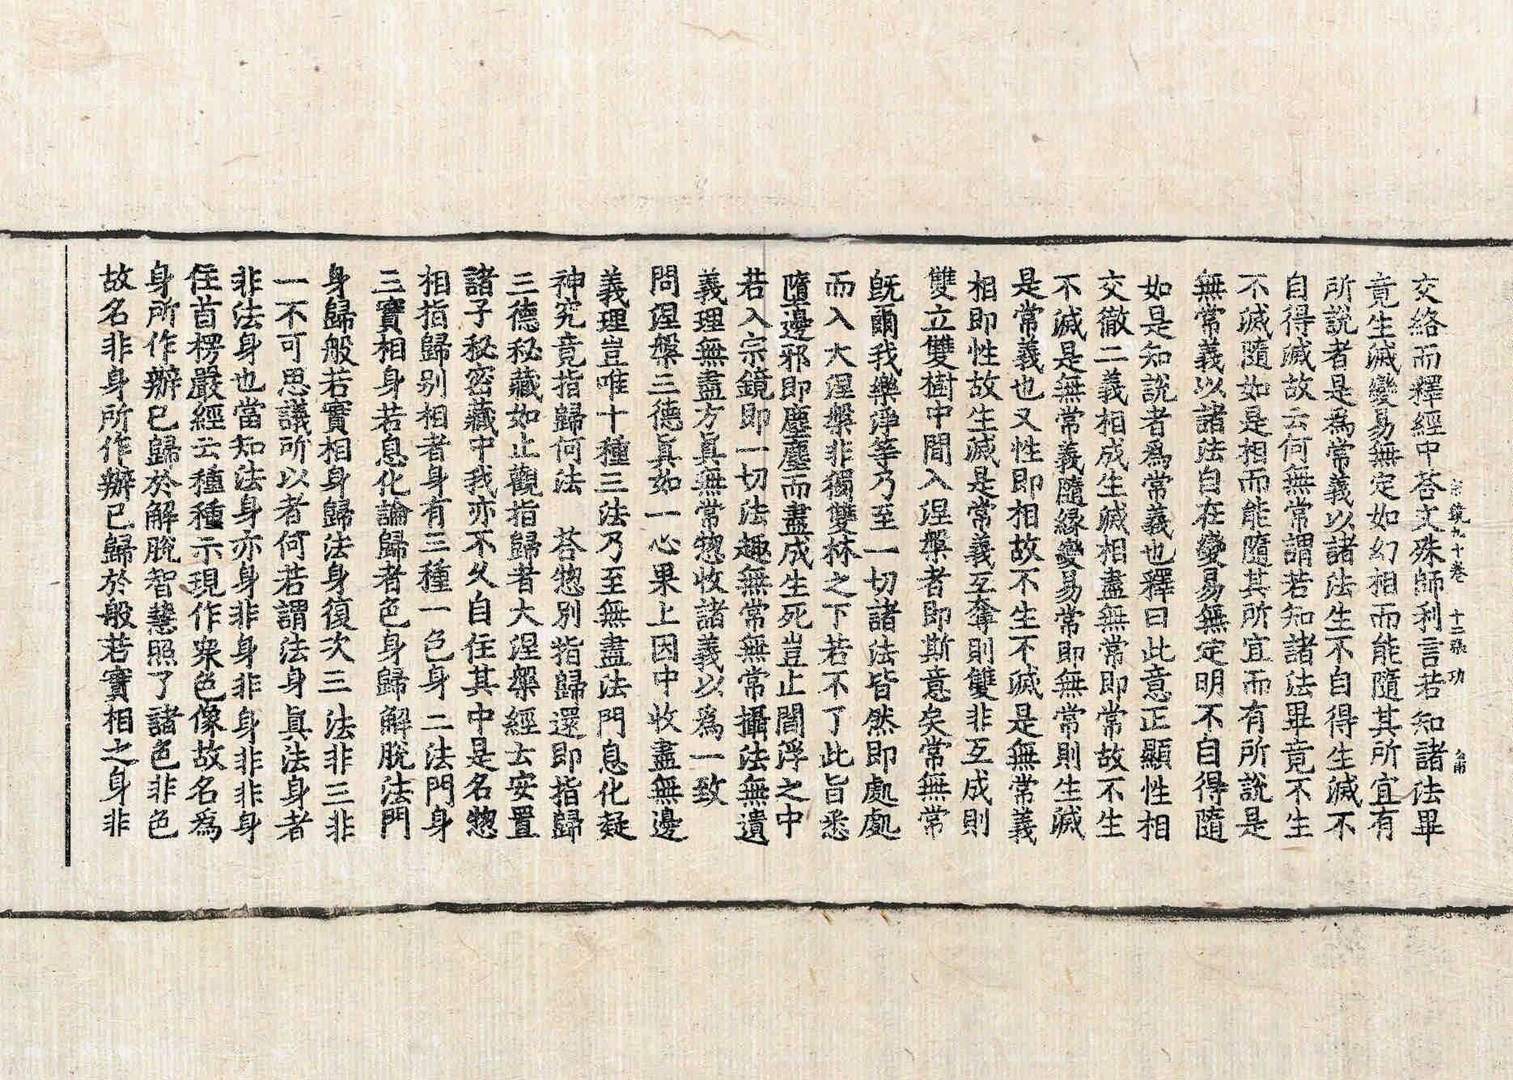 宗鏡九十卷　十二張　功
交絡而釋經中荅文殊師利言若知諸法畢
竟生滅變易無定如幻相而能隨其所宜有
所說者是爲常義以諸法生不自得生滅不
自得滅故云何無常謂若知諸法畢竟不生
不滅隨如是相而能隨其所宜而有所說是
無常義以諸法自在變易無定明不自得隨
如是知說者爲常義也釋曰此意正顯性相
交徹二義相成生滅相盡無常即常故不生
不滅是無常義隨緣變易常即無常則生滅
是常義也又性即相故不生不滅是無常義
相即性故生滅是常義互奪則雙非互成則
雙立雙樹中間入涅槃者即斯意矣常無常
旣爾我樂淨等乃至一切諸法皆然即處處
而入大涅槃非獨雙林之下若不了此旨悉
墮邊邪即塵塵而盡成生死豈止閻浮之中
若入宗鏡即一切法趣無常無常攝法無遺
義理無盡方眞無常惣收諸義以爲一致
問涅槃三德眞如一心果上因中收盡無邊
義理豈唯十種三法乃至無盡法門息化凝
神究竟指歸何法　荅惣別指歸還即指歸
三德秘藏如止觀指歸者大涅槃經云安置
諸子秘密藏中我亦不久自住其中是名惣
相指歸別相者身有三種一色身二法門身
三實相身若息化論歸者色身歸解脫法門
身歸般若實相身歸法身復次三法非三非
一不可思議所以者何若謂法身眞法身者
非法身也當知法身亦身非身非身非非身
住首楞嚴經云種種示現作衆色像故名爲
身所作辦已歸於解脫智慧照了諸色非色
故名非身所作辦已歸於般若實相之身非